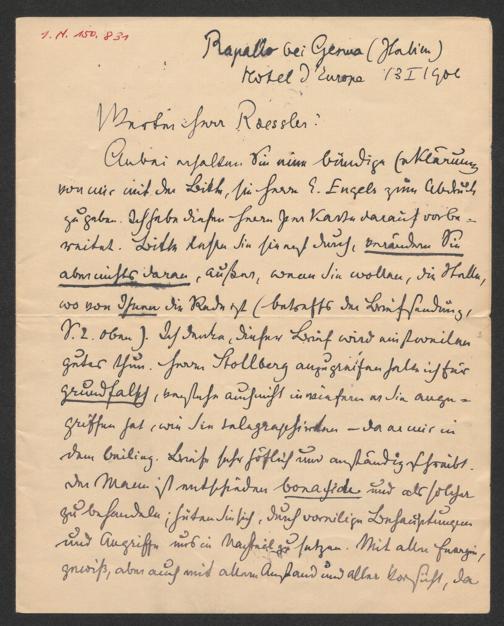 I. N. 150.831
Rapallo bei Genua (Italien)
Hotel d'Europe 13 I 1906
Werter Herr Roessler!
Anbei erhalten Sie eine bündige Erklärung
von mir mit der Bitte, sie Herrn E. Engels zum Abdruck
zu geben. Ich habe diesen Herrn per Karte darauf vorbe-
reitet. Bitte lesen Sie sie erst durch, verändern Sie
aber nichts daran, außer, wenn Sie wollen, die Stelle,
wo von Ihnen die Rede ist (betreffs der Briefsendung,
S. 2. oben). Ich denke, dieser Brief wird einstweilen
gutes thun. Herrn Stollberg anzugreifen halte ich für
grundfalsch, verstehe auch nicht inwiefern er Sie ange-
griffen hat, wie Sie telegraphierten – da er mir in
dem beilieg. Briefe sehr höflich und anständig schreibt.
Der Mann ist entschieden bona fide und als solcher
zu behandeln; hüten Sie sich, durch voreilige Behauptungen
und Angriffe uns in Nachteil zu setzen. Mit aller Energie,
gewiß, aber auch mit allem Anstand und aller Vorsicht, da